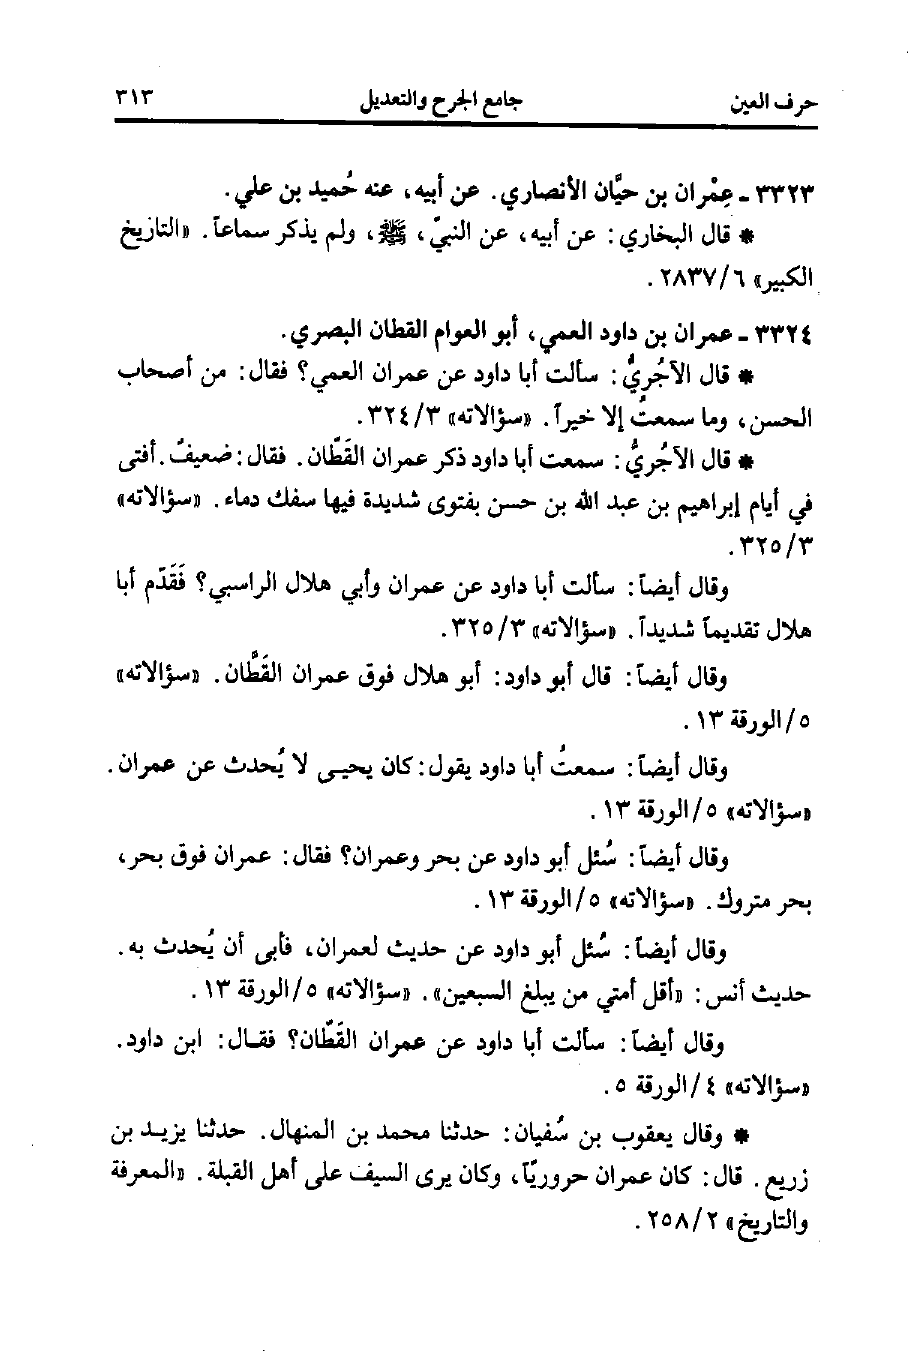 حرف العين جامع الجرح والتعديل ٣١٣
٣٣٢٣ ـ عِمْران بن حيَّان الأنصاري. عن أبيه، عنه حُميد بن علي.
* قال البخاري: عن أبيه، عن النبيّ، ﷺ، ولم يذكر سماعاً. «التاريخ
الكبير» ٦/ ٢٨٣٧.
٣٣٢٤ ـ عمران بن داود العمي، أبو العوام القطان البصري.
* قال الآجُريُّ: سألت أبا داود عن عمران العمي؟ فقال: من أصحاب
الحسن، وما سمعتُ إلا خيراً. «سؤالاته» ٣/ ٣٢٤.
* قال الآجُريُّ: سمعت أبا داود ذكر عمران القَطَّان. فقال: ضعيفٌ. أفتى
في أيام إبراهيم بن عبد الله بن حسن بفتوى شديدة فيها سفك دماء. «سؤالاته»
٣/ ٣٢٥.
وقال أيضاً: سألت أبا داود عن عمران وأبي هلال الراسبي؟ فَقَدَّم أبا
هلال تقديماً شديداً. «سؤالاته» ٣/ ٣٢٥.
وقال أيضاً: قال أبو داود: أبو هلال فوق عمران القَطَّان. «سؤالاته»
٥/ الورقة ١٣.
وقال أيضاً: سمعتُ أبا داود يقول: كان يحيى لا يُحدث عن عمران.
«سؤالاته» ٥/ الورقة ١٣.
وقال أيضاً: سُئل أبو داود عن بحر وعمران؟ فقال: عمران فوق بحر،
بحر متروك. «سؤالاته» ٥/ الورقة ١٣.
وقال أيضاً: سُئل أبو داود عن حديث لعمران، فأبى أن يُحدث به.
حديث أنس: «أقل أمتي من يبلغ السبعين». «سؤالاته» ٥/ الورقة ١٣.
وقال أيضاً: سألت أبا داود عن عمران القَطَّان؟ فقال: ابن داود.
«سؤالاته» ٤/ الورقة ٥.
* وقال يعقوب بن سُفيان: حدثنا محمد بن المنهال. حدثنا يزيد بن
زريع. قال: كان عمران حروريّاً، وكان يرى السيف على أهل القبلة. «المعرفة
والتاريخ» ٢/ ٢٥٨.